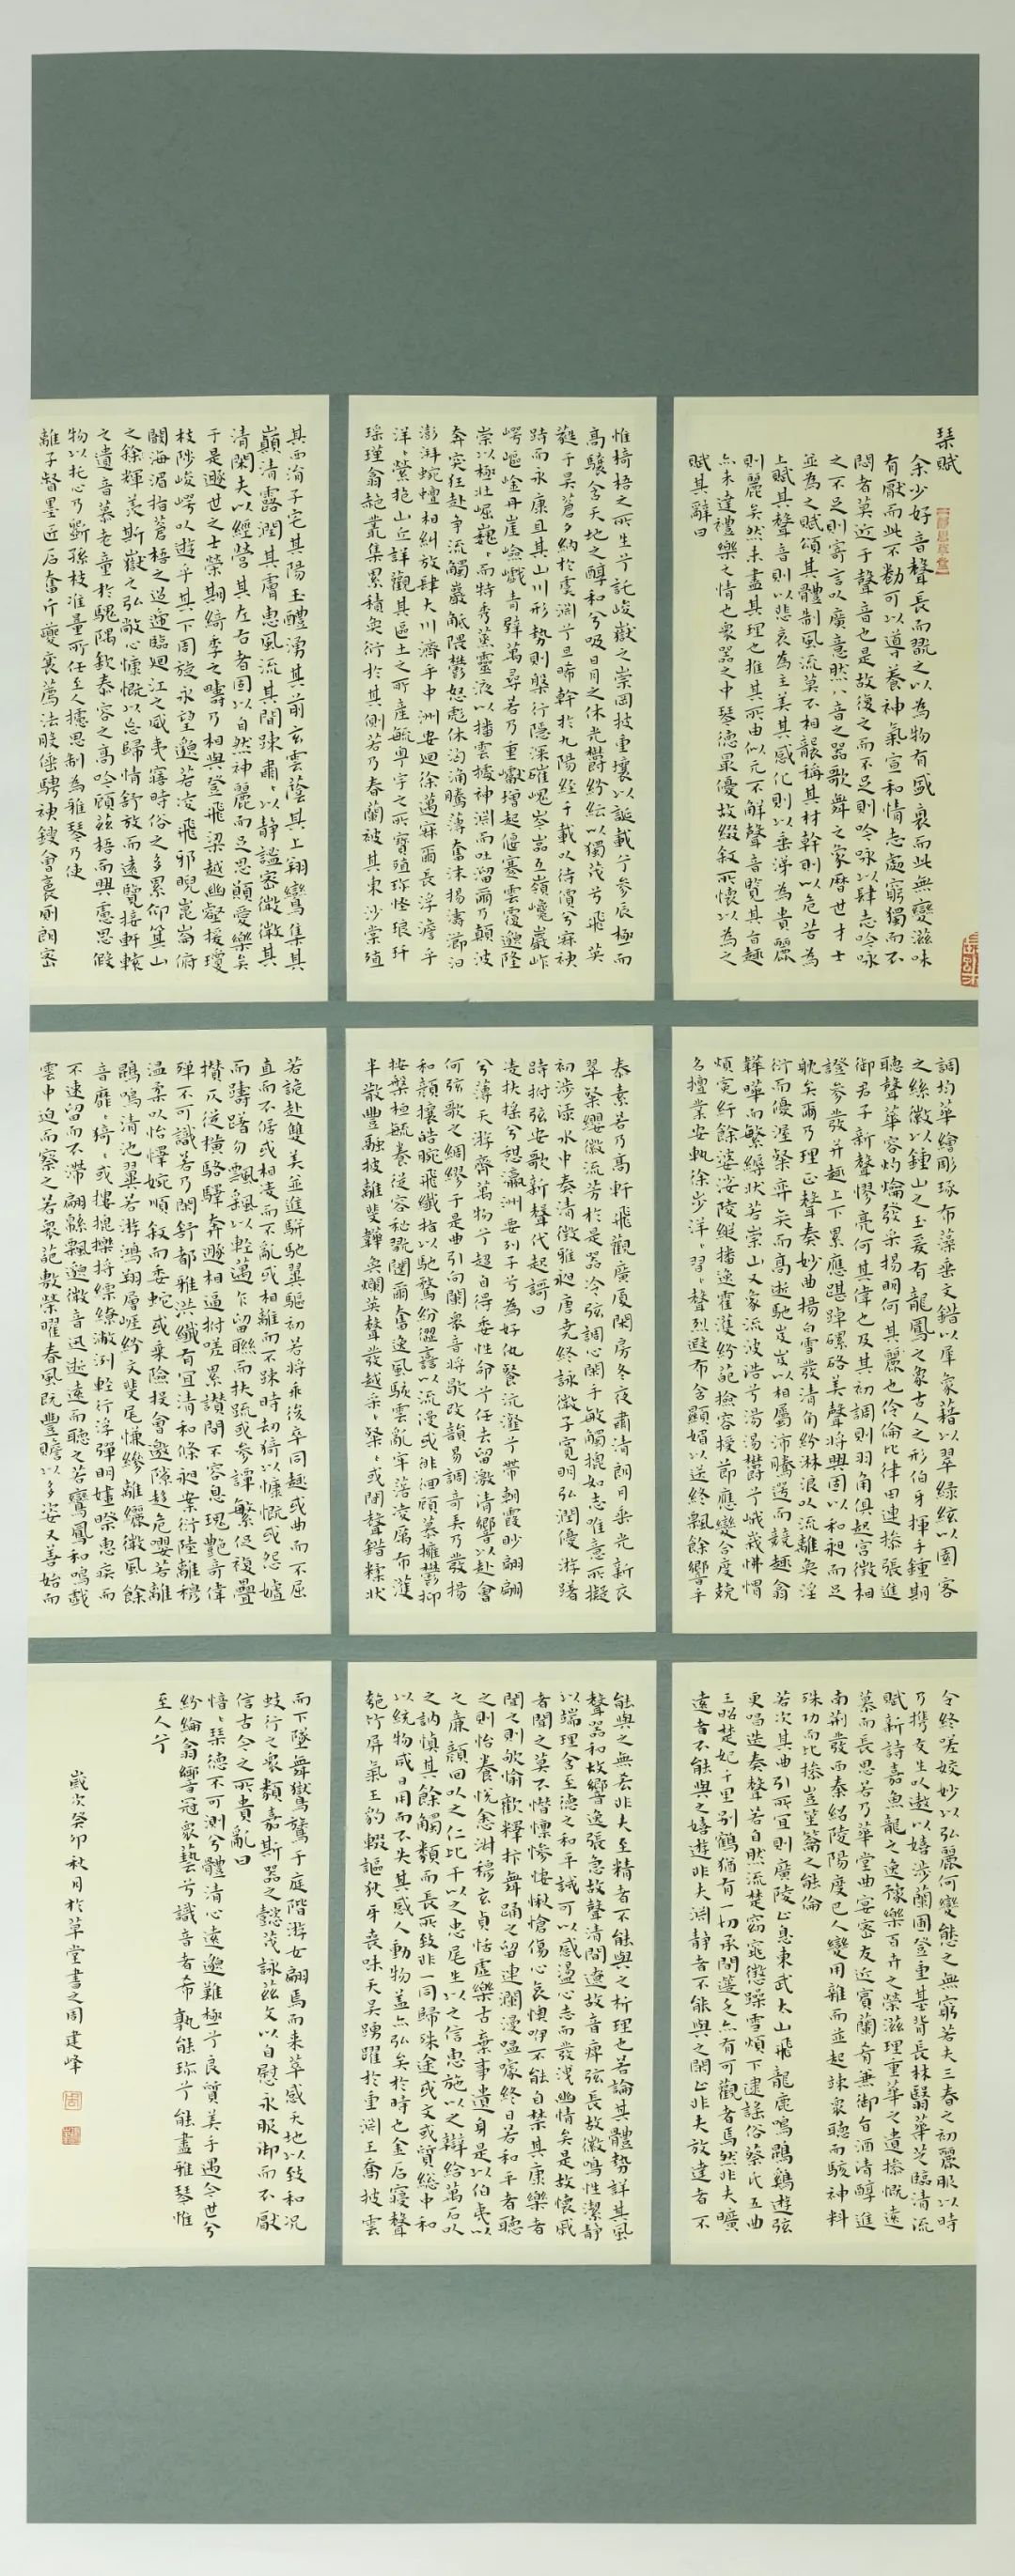 琴賦
余少好音聲長而翫之以為物有盛衰而此無變滋味
有厭而此不勌可以導養神氣宣和情志處窮獨而不
悶者莫近于聲音也是故復之而不足則吟咏以肆志吟咏
之不足則寄言以廣意然八音之器歌舞之象歷世才士
並為之賦頌其體制風流莫不相襲稱其材幹則以危苦為
上賦其聲音則以悲哀為主美其感化則以垂涕為貴麗
則麗矣然未盡其理也推其所由似元不解聲音覽其旨趣
亦未達禮樂之情也衆器之中琴德最優故綴叙所懷以為之
賦其辭曰
惟椅梧之所生兮託峻嶽之崇岡披重壤以誕載兮參辰極而
高驤含天地之醇和兮吸日月之休光鬱紛紜以獨茂兮飛英
蕤于昊蒼夕納於虞淵兮旦晞幹於九陽經千載以待價兮寂神
跱而永康且其山川形勢則盤紆隱深磪嵬岑嵓互嶺巉巖岞
崿嶇崟丹崖嶮巇青壁萬尋若乃重巘增起偃蹇雲覆邈隆
崇以極壯崛巍〻而特秀蒸靈液以播雲據神淵而吐溜爾乃顛波
奔突狂赴爭流觸巖觝隈鬱怒彪休洶涌騰薄奮沫揚濤瀄汩
澎湃蜿蟺相糾放肆大川濟乎中洲安迴徐邁寂爾長浮澹乎
洋〻縈抱山丘詳觀其區土之所產毓奧宇之所寶殖珍怪琅玕
瑤瑾翕赩叢集累積奐衍於其側若乃春蘭被其東沙棠殖
其西涓子宅其陽玉醴湧其前玄雲蔭其上翔鸞集其
巔清露潤其膚惠風流其間竦肅〻以靜謐密微微其
清閑夫以經營其左右者固以自然神麗而足思願愛樂矣
于是遯世之士榮期綺季之疇乃相與登飛梁越幽壑援瓊
枝陟峻崿以遊乎其下周旋永望邈若凌飛邪睨崑崙俯
闞海湄指蒼梧之迢遞臨迴江之威夷寤時俗之多累仰箕山
之餘輝羨斯嶽之弘敞心慷慨以忘歸情舒放而遠覽接軒轅
之遺音慕老童於騩隅欽泰容之高吟顧茲梧而興慮思假
物以托心乃斲孫枝准量所任至人攄思制為雅琴乃使
離子督墨匠石奮斤夔襄薦法般倕騁神鎪會裛厠朗密
調均華繪彫琢布藻垂文錯以犀象藉以翠綠絃以園客
之絲徽以鍾山之玉爰有龍鳳之象古人之形伯牙揮手鍾期
聽聲華容灼爚發采揚明何其麗也伶倫比律田連操張進
御君子新聲憀亮何其偉也及其初調則羽角俱起宮徵相
證參發并趣上下累應踸踔磥硌美聲將興固以和昶而足
耽矣爾乃理正聲奏妙曲揚白雪發清角紛淋浪以流離奐淫
衍而優渥粲弈〻而高逝馳岌岌以相屬沛騰遌而競趣翕
韡曄而繁縟狀若崇山又象流波浩兮湯湯鬱兮峨峨怫㥜
煩冤紆餘婆娑陵縱播逸霍濩紛葩檢容授節應變合度兢
名擅業安軌徐步洋〻習〻聲烈遐布含顯媚以送終飄餘響乎
泰素若乃高軒飛觀廣廈閑房冬夜肅清朗月垂光新衣
翠粲纓徽流芳於是器冷弦調心閑手敏觸㧙如志唯意所擬
初涉淥水中奏清徵雅昶唐堯終詠微子寬明弘潤優游躇
跱拊弦安歌新聲代起謌曰
凌扶搖兮憩瀛洲要列子兮為好仇餐沆瀣兮帶朝霞眇翩翩
兮薄天游齊萬物兮超自得委性命兮任去留激清響以赴會
何弦歌之綢繆于是曲引向闌衆音將歇改韻易調奇弄乃發揚
和顏攘皓腕飛纖指以馳騖紛㒊譶以流漫或徘徊顧慕擁鬱抑
按盤桓毓養從容秘翫闥爾奮逸風駭雲亂牢落凌厲布濩
半散豐融披離斐韡奐爛英聲發越采〻粲〻或間聲錯糅狀
若詭赴雙美並進駢馳翼驅初若將乖後卒同趣或曲而不屈
直而不倨或相凌而不亂或相離而不殊時劫掎以慷慨或怨㜘
而躊躇忽飄颻以輕邁乍留聯而扶疏或參譚繁促複疊
攢仄從橫駱驛奔遯相逼拊嗟累讚間不容息瑰艷奇偉
殫不可識若乃閑舒都雅洪纖有宜清和條昶案衍陸離穆
溫柔以怡懌婉順叙而委蛇或乘險投會邀隙趍危嚶若離
鵾鳴清池翼若游鴻翔層崖紛文斐尾慊縿離纚微風餘
音靡〻猗〻或摟㧙擽捋縹繚潎洌輕行浮彈明嫿㬢惠疾而
不速留而不滯翩緜飄邈微音迅逝遠而聽之若鸞鳳和鳴戲
雲中迫而察之若衆葩敷榮曜春風既豐贍以多姿又善始而
令終嗟姣妙以弘麗何變態之無窮若夫三春之初麗服以時
乃携友生以遨以嬉涉蘭圃登重基背長林翳華芝臨清流
賦新詩嘉魚龍之逸豫樂百卉之榮滋理重華之遺操慨遠
慕而長思若乃華堂曲宴密友近賓蘭肴兼御旨酒清醇進
南荊發西秦紹陵陽度巴人變用雜而並起竦衆聽而駭神料
殊功而比操豈笙籥之能倫
若次其曲引所宜則廣陵止息東武太山飛龍鹿鳴鵾鷄遊弦
更唱迭奏聲若自然流楚窈窕懲躁雪煩下逮謠俗蔡氏五曲
王昭楚妃千里别鶴猶有一切承間簉乏亦有可觀者焉然非夫曠
遠者不能與之嬉遊非夫淵靜者不能與之閑止非夫放達者不
能與之無吝非夫至精者不能與之析理也若論其體勢詳其風
聲器和故響逸張急故聲清間遼故音痺弦長故徽鳴性潔靜
以端理含至德之和平誠可以感盪心志而發洩幽情矣是故懷戚
者聞之莫不憯懍慘悽愀愴傷心哀懊咿不能自禁其康樂者
聞之則欨愉歡釋抃舞踊溢留連瀾漫嗢噱終日若和平者聽
之則怡養悅悆淑穆玄貞恬虛樂古棄事遺身是以伯夷以
之廉顏回以之仁比干以之忠尾生以之信惠施以之辯給萬石以
之訥慎其餘觸類而長所致非一同歸殊途或文或質總中和
以統物咸日用而不失其感人動物蓋亦弘矣於時也金石寢聲
匏竹屏氣王豹輟謳狄牙喪味天吳踴躍於重淵王喬披雲
而下墜舞鸑鷟于庭階游女飄焉而来萃感天地以致和况
蚑行之衆類嘉斯器之懿茂詠茲文以自慰永服御而不厭
信古今之所貴亂曰
愔〻琴德不可測兮體清心遠邈難極兮良質美手遇今世兮
紛綸翕響冠衆藝兮識音者希孰能珍兮能盡雅琴惟
至人兮
歲次癸卯秋月於草堂書之周建峰